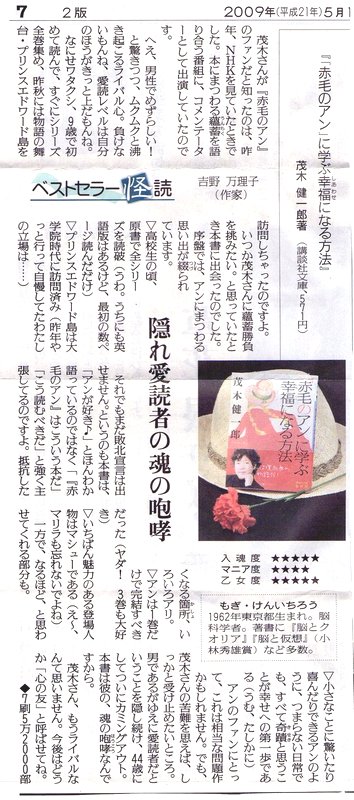 7
2版
2009年(平成21年)5月1
『「赤毛のアン」に学ぶ幸福になる方法』
茂木 健一郎著
講談社文庫、571円)
茂木さんが『赤毛のアン』
のファンだと知ったのは、昨
年、NHKを見ていたときで
した。本にまつわる蘊蓄を語
り合う番組に、コメンテータ
ーとして出演していたので
す。
へえ、男性でめずらしい!
と驚きつつ、ムクムクと沸
き起こるライバル心。負けな
いもんね、愛読レベルは自分
のほうがきっと上だもんね。
なにせワタクシ、9歳で初
めて読んで、すぐにシリーズ
全巻集め、昨秋には物語の舞
台・プリンスエドワード島を
ベストセラー怪読
吉野 万理子
(作家)
訪問しちゃったのですよ。
いつか茂木さんに蘊蓄勝負
を挑みたい。と思っていたと
き本書に出会ったのでした。
序盤では、アンにまつわる
思い出が綴られ
ています。
▽高校生の頃、
原書で全シリー
ズを読破(うわ。うちにも英
語版はあるけど、最初の数ペ
ージ読んだだけ)
▽プリンスエドワード島は大
学院時代に訪問済み(昨年や
っと行って自慢してたわたし
の立場は……)
隠れ愛読者の魂の咆哮
それでもまだ敗北宣言は出
せません。というのも本書は、
「アンが好き♪」とほんわか
語っているのではなく「『赤
毛のアン』はこういう本だ」
「こう読むべきだ」と強く主
張してるのですよ。抵抗した
くなる箇所、い
ろいろアリ。
▽アンは1巻だ
けで完結すべき
だった(ヤダ! 3巻も大好
き)
▽いちばん魅力のある登場人
物はマシューである(えー、
マリラも忘れないでよね)
一方で、なるほど、と思わ
せてくれる部分も。
赤毛のアンに学ぶ
幸福になる方法
茂木健一郎
入魂度 ★★★★★
マニア度 ★★★★
乙女度 ★★★★★
もぎ・けんいちろう
1962年東京都生まれ。脳
科学者。著書に『脳とク
オリア』『脳と仮想』(小
林秀雄賞)など多数。
▽小さなことに驚いたり
喜んだりできるアンのよ
うに、つまらない日常で
も、すべて奇蹟と思うこ
とが幸せへの第一歩であ
る(うむ、たしかに)
アンのファンにとっ
て、これは相当な問題作
かもしれません。でも、
茂木さんの苦難を思えば、し
っかと受け止めたいところ。
男であるがゆえに愛読者だと
いうことを隠し続け、44歳に
してついにカミングアウト。
本書は彼の、魂の咆哮なんで
すから。
茂木さん、もうライバルな
んて思いません。今後はどう
か「心の友」と呼ばせてね。
◆7刷5万2000部